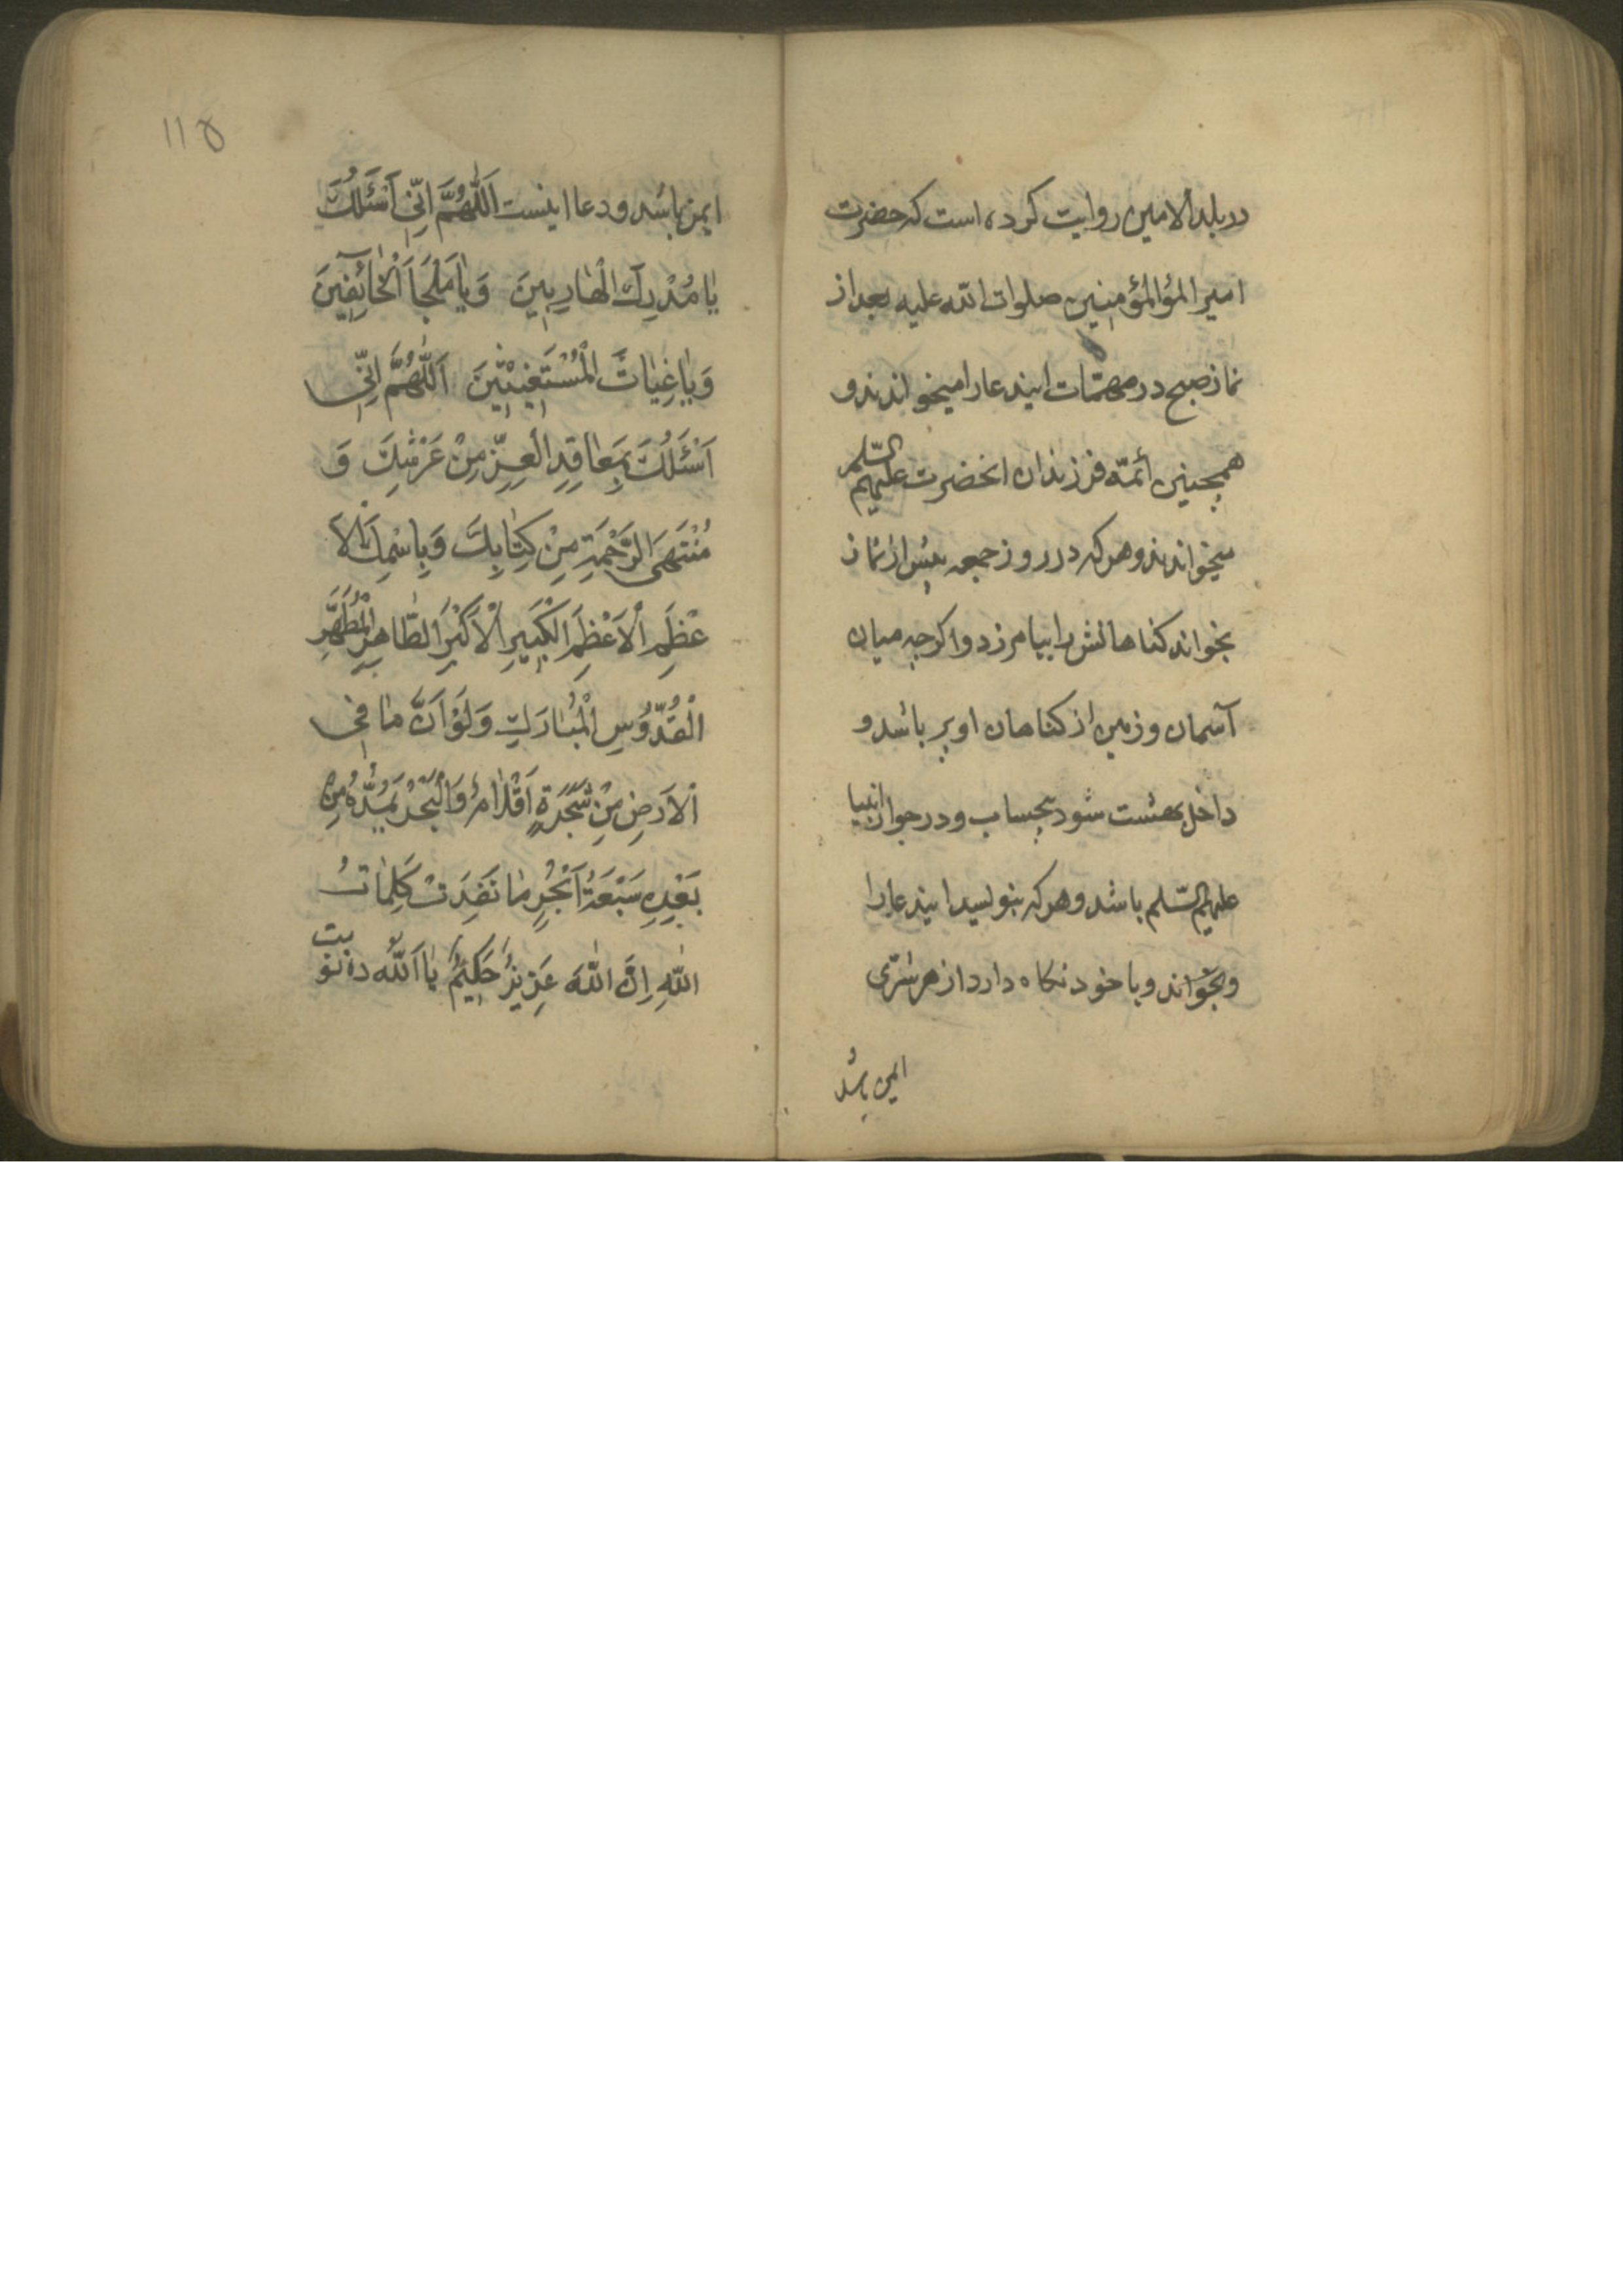 در بلد الامین روایت کرده است که حضرت
امیر المؤالمؤمنین صلوات الله علیه بعد از
نماز صبح در مهمّات ایندعا را میخواندند و
همچنین أئمّه فرزندان انحضرت علیهم السّلم
میخواندند و هرکه در روز جمعه پیش از نماز
بخواند کناهانش را بیامرزد و اکرچه میان
آسمان و زمین از کناهان او پر باشد و
داخل بهشت شود بیحساب و در جوار انبیا
علیهم السّلم باشد و هرکه بنویسد ایندعا را
و بخواند و با خود نکاه دارد از هر شرّی
ایمن باشد
١١٥
ایمن باشد و دعا اینست اَللّٰهُمَّ اِنّی اَسْئَلُكَ
یٰا مُدْرِكَ الْهٰارِبینَ وَ یٰا مَلْجَاَ الْخٰآئِفینَ
وَ یٰا غِیٰاثَ الْمُسْتَغیثینَ اَللّٰهُمَّ اِنّی
اَسْئَلُكَ بِمَعٰاقِدِ الْعِزِّ مِنْ عَرْشِكَ وَ
مُنْتَهَی الرَّحْمَةِ مِنْ كِتٰابِكَ وَ بِاسْمِكَ الْاَ
عْظَمِ الْاَعْظَمِ الْكَبیرِ الْاَكْبَرِ الطّٰاهِرِ الْمُطَهَّرِ
الْقُدّوُسِ الْمُبٰارَكِ وَ لَوْ اَنَّ مٰا فِی
الْاَرْضِ مِنْ شَجَرَةٍ اَقْلٰامٌ وَ الْبَحْرُ یَمُدُّهُ مِنْ
بَعْدِهِ سَبْعَةُ اَبْحُرٍ مٰا نَفِدَتْ كَلِمٰاتُ
اللّٰهِ اِنَّ اللّٰهَ عَزیزٌ حَكیمٌ یٰا اَللّٰهُ ده نوبت